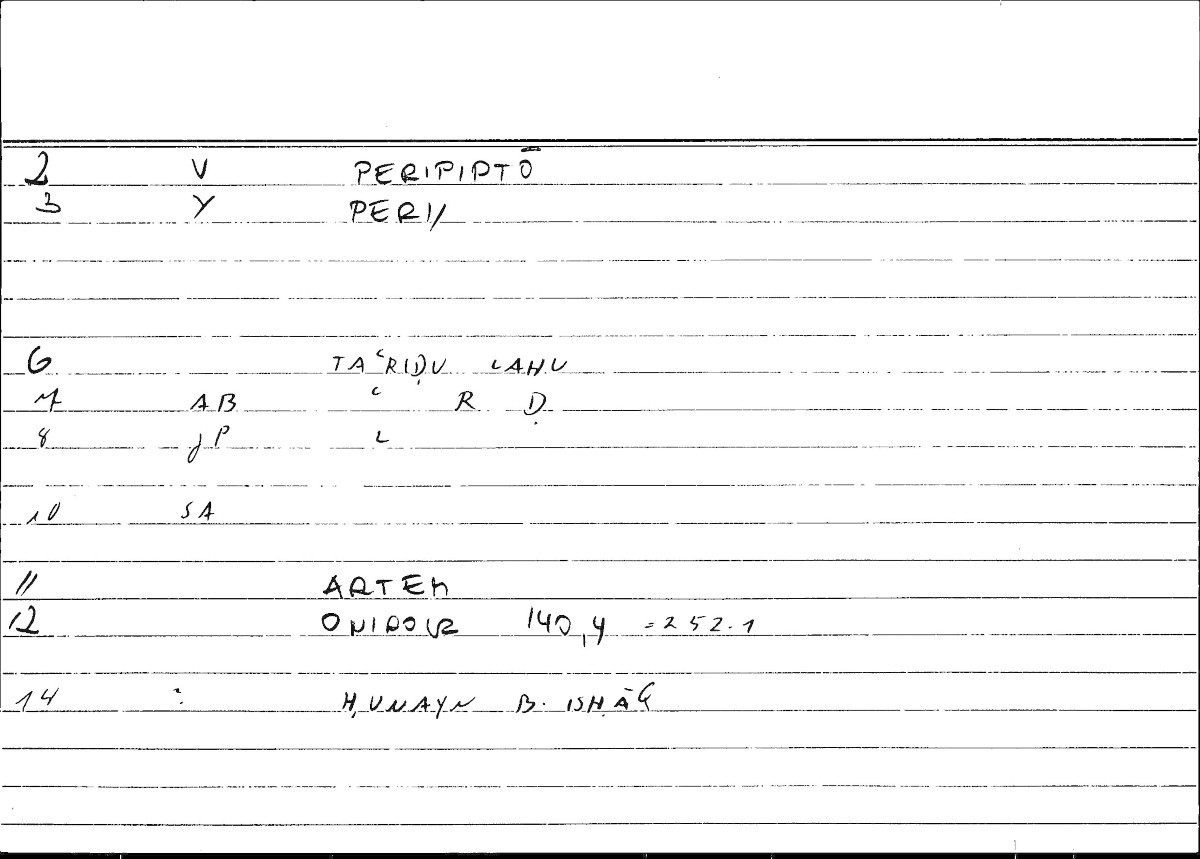 2 V PERIPIPTŌ
3 Y PERI//
6 TAʿRIḌU LAHU
7 AB ʿ R Ḍ
8 JP L
10 SA
11 ARTEM
12 ONIDOVR 140,4 =252.1
14 : ḤUNAYN B. ISḤĀQ